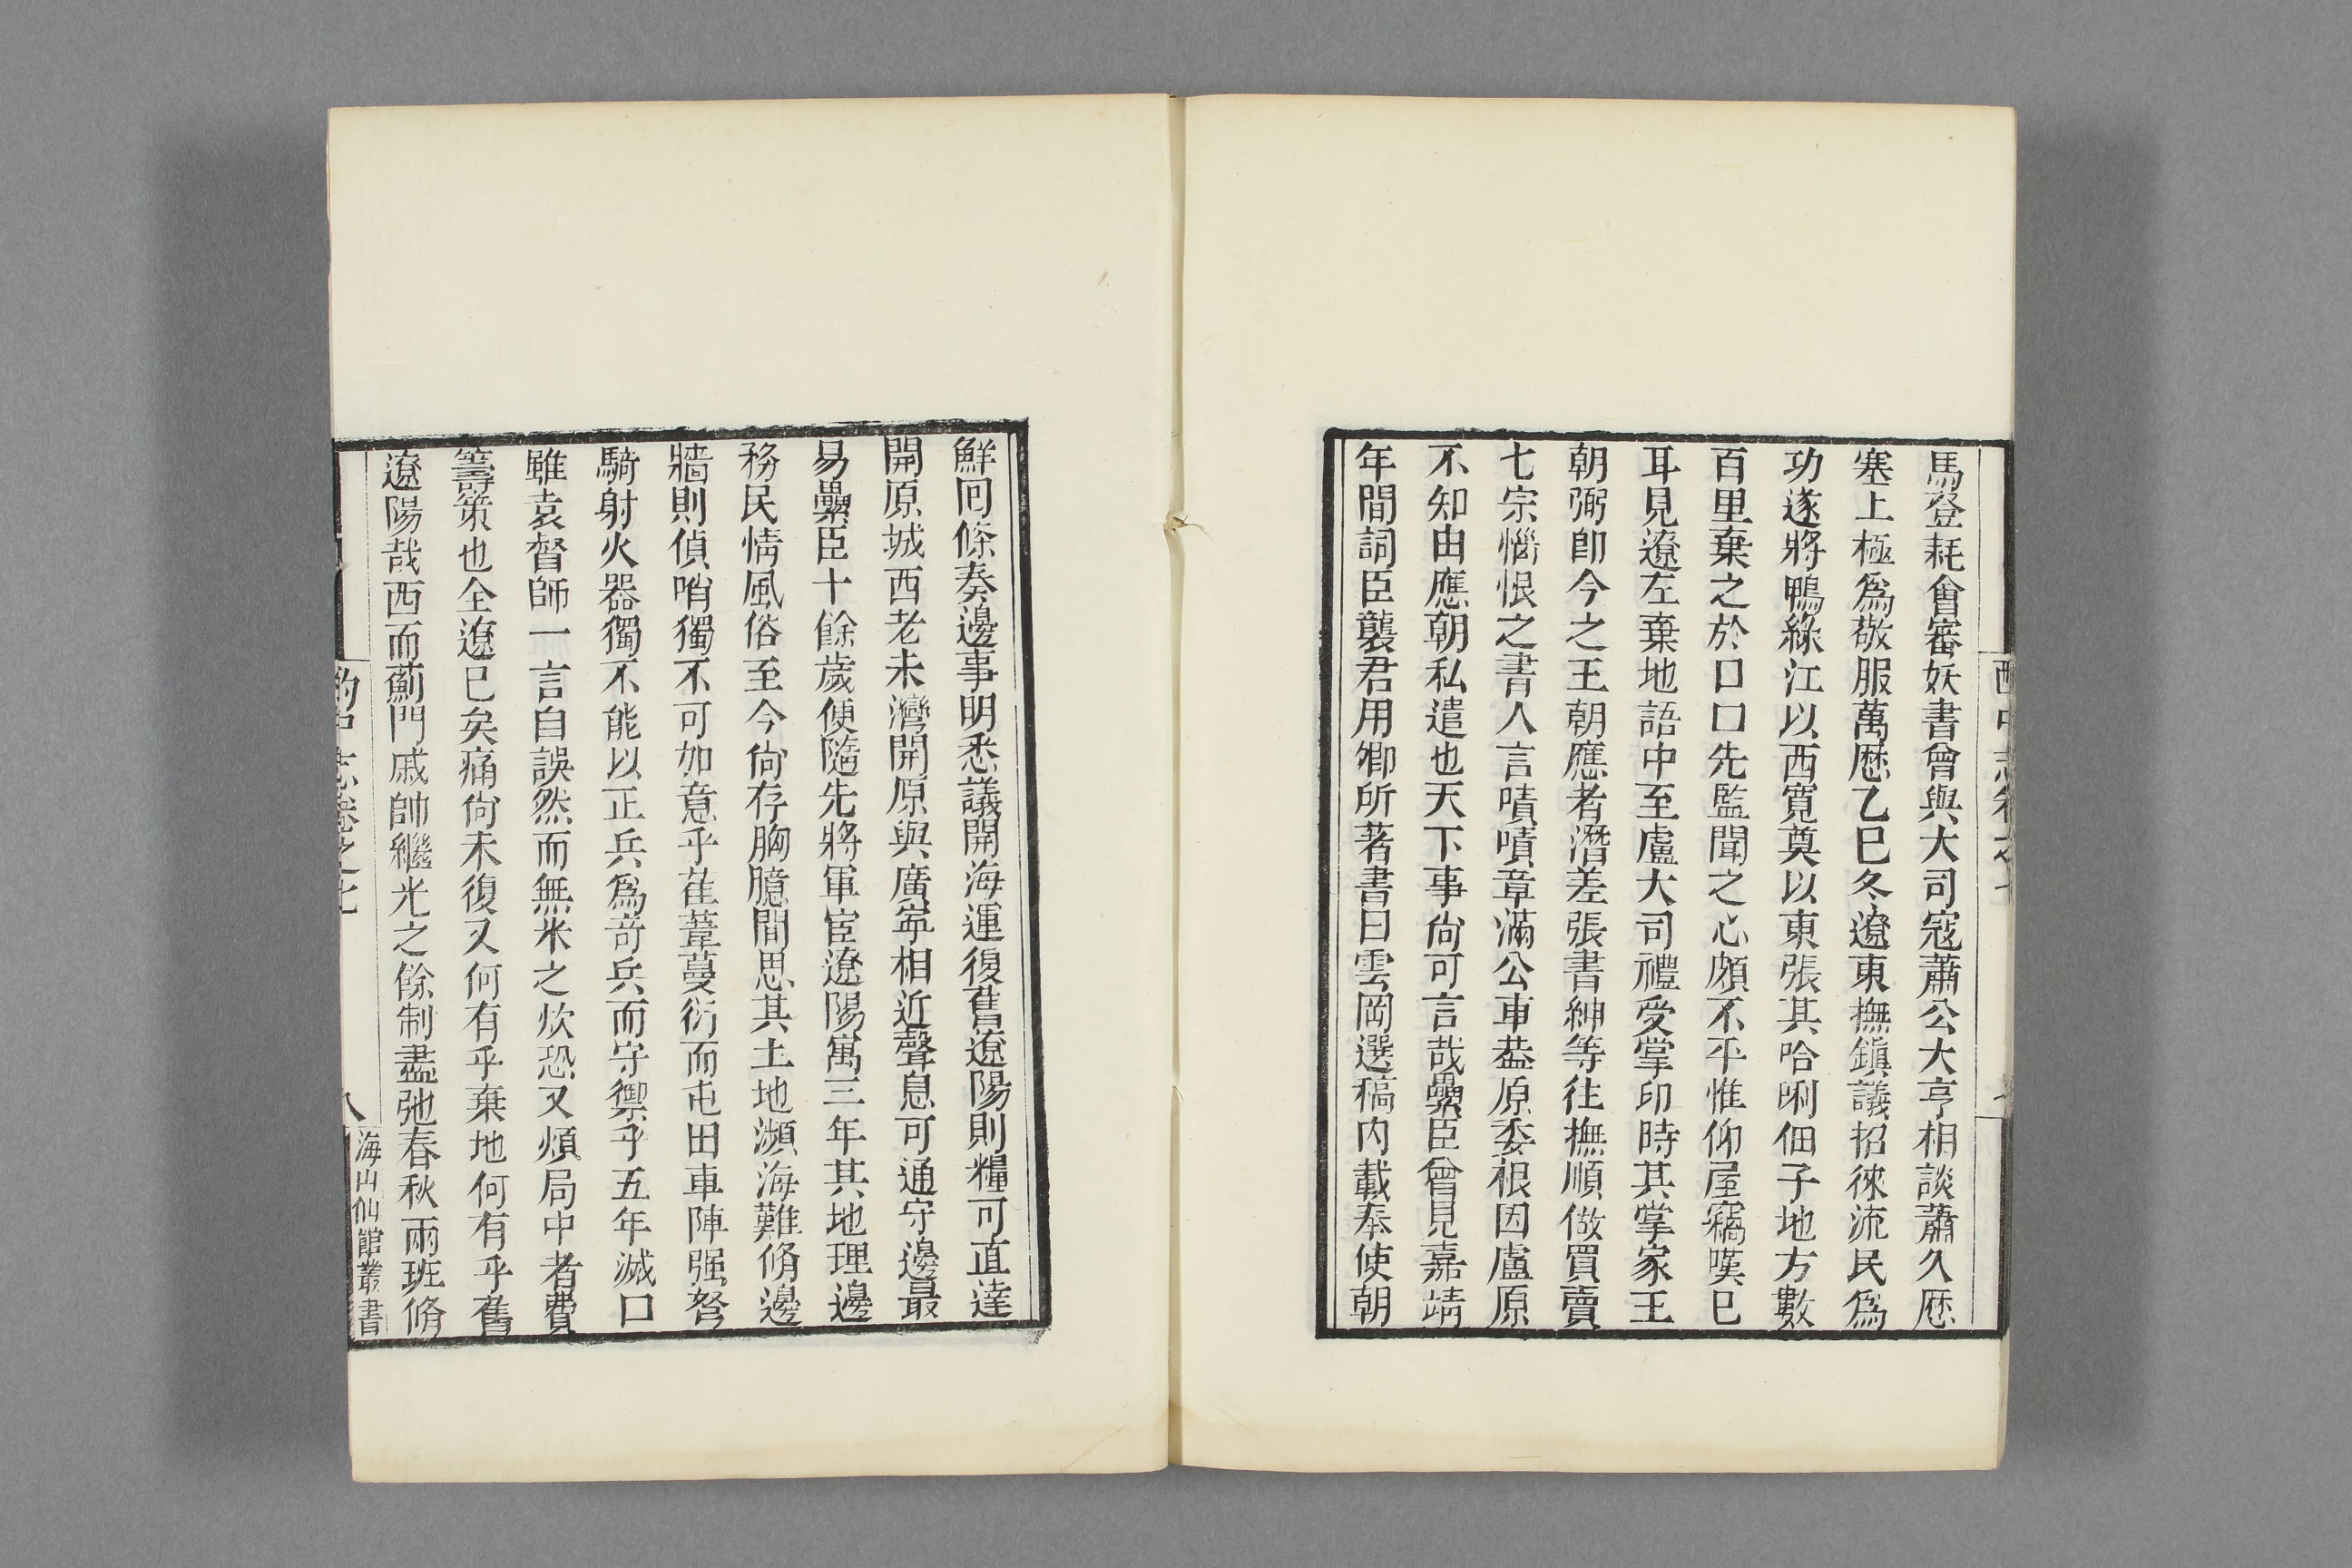 馬登耗會審妖書曾與大司寇蕭公大亨相談蕭久厯
塞上極爲敬服萬厯乙巳冬遼東撫鎮議招徠流民爲
功遂將鴨綠江以西寬奠以東張其哈唎佃子地方數
百里棄之於口口先監聞之心頗不平惟仰屋竊嘆巳
耳見遼左棄地語中至盧大司禮受掌印時其掌家王
朝弼卽今之王朝應者潛差張書紳等往撫順做買賣
七宗惱恨之書人言嘖嘖章滿公車葢原委根因盧原
不知由應朝私遣也天下事尙可言哉纍臣曾見嘉靖
年間詞臣龔君用卿所著書曰雲岡選稿內載奉使朝
鮮回條奏邊事明悉議開海運復舊遼陽則糧可直達
開原城西老未灣開原與廣寧相近聲息可通守邊最
易纍臣十餘歲便隨先將軍宦遼陽寓三年其地理邊
務民情風俗至今尙存胸臆間思其土地瀕海難脩邊
牆則偵哨獨不可加意乎萑葦蔓衍而屯田車陣强弩
騎射火器獨不能以正兵爲竒兵而守禦乎五年滅口
雖袁督師一言自誤然而無米之炊恐又煩局中者費
籌策也全遼巳矣痛尙未復又何有乎棄地何有乎舊
遼陽哉西而薊門戚帥繼光之餘制盡弛春秋兩班脩
酌中志卷之七
八
海山仙館叢書